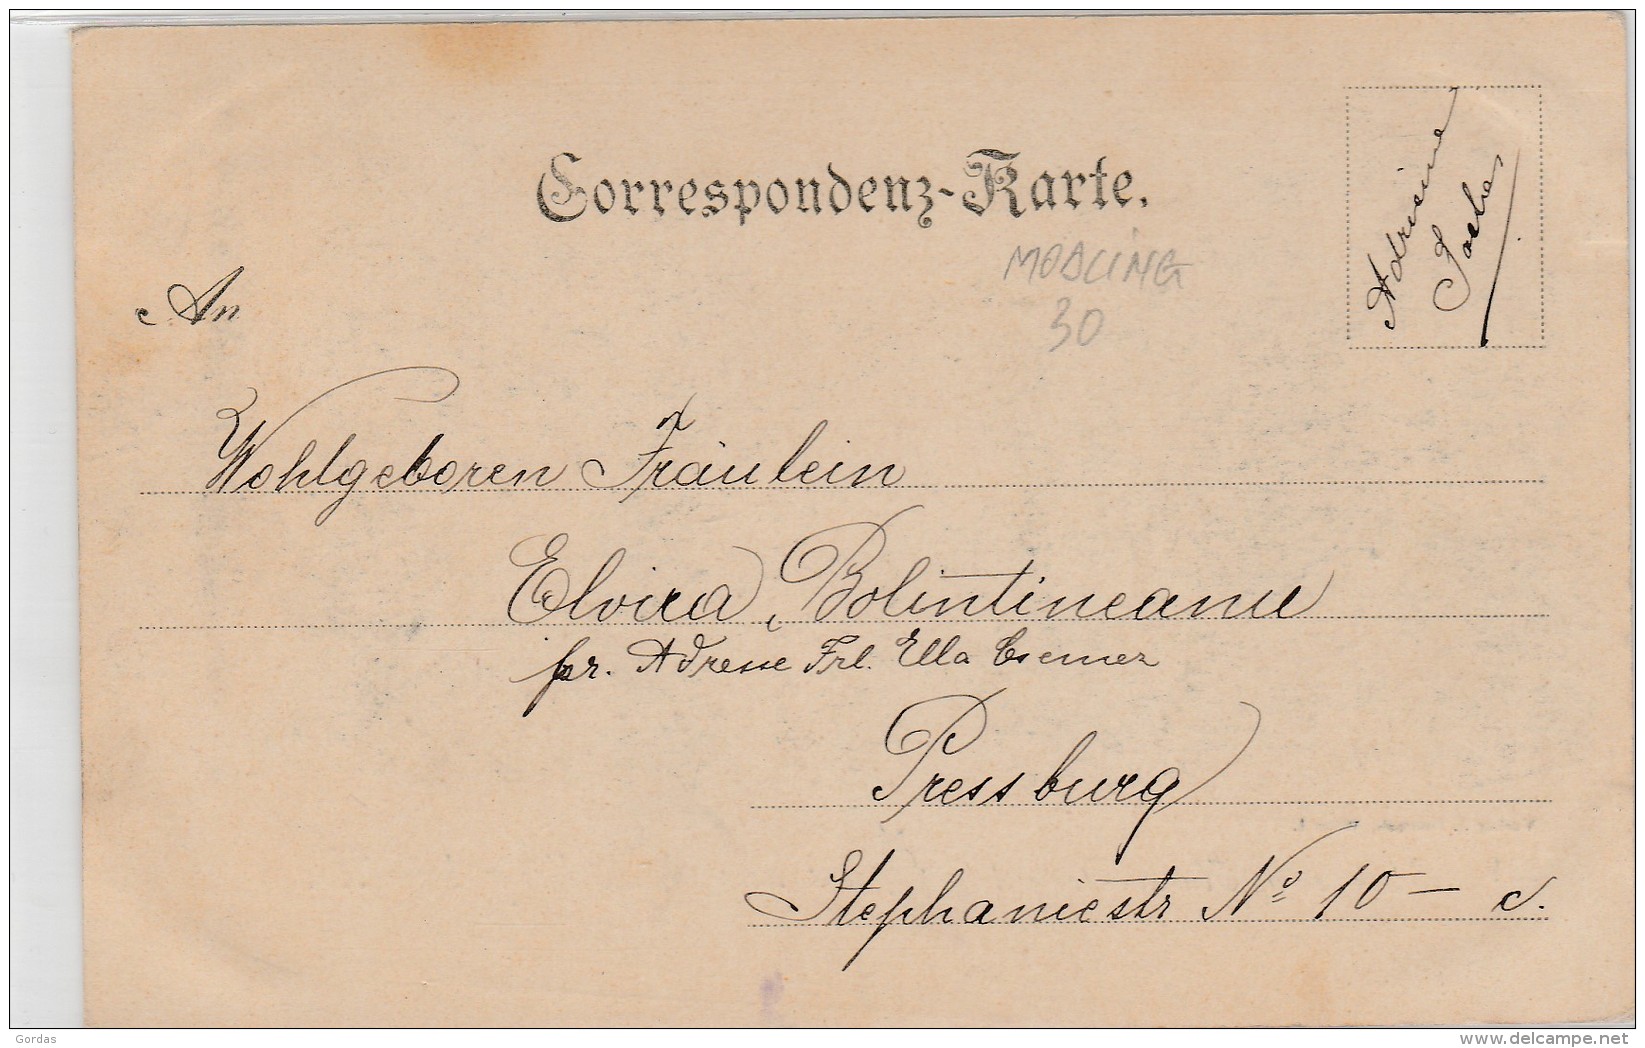 Correspondenz-Karte.
Adrienne
MODLING
30
An
Wohlgeboren Fräulein
Elvira Bolintineanu
pr. Adresse Frl. Ella Csemez
Pressburg
Stephaniestr No 10 - c.
Gordas
delcampe.net